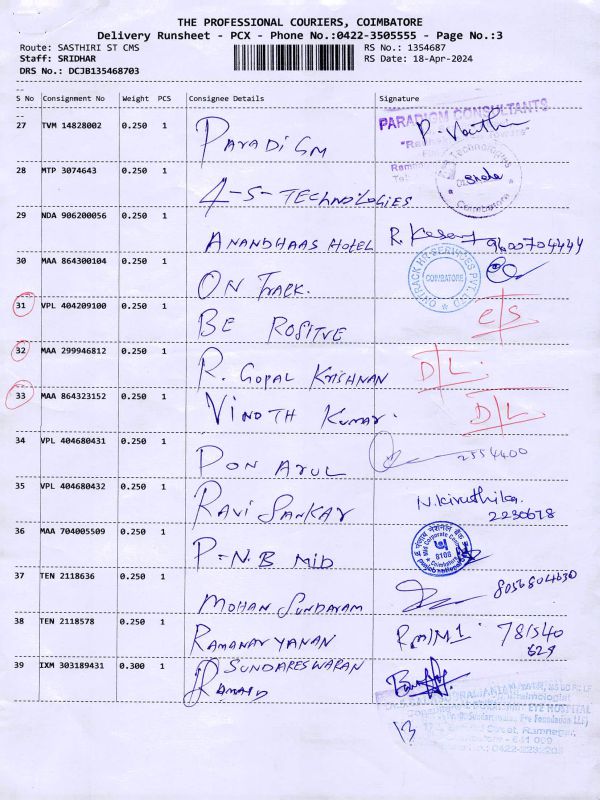 THE PROFESSIONAL COURIERS, COIMBATORE
Delivery Runsheet - PCX - Phone No.:0422-3505555 - Page No.:3
Route: SASTHIRI ST CMS
RS No.: 1354687
Staff: SRIDHAR
RS Date: 18-Apr-2024
DRS No.: DCJB135468703
S No Consignment No Weight PCS Consignee Details Signature
PARADIGM CONSULTANTS
27 TVM 14828002 0.250 1 Paradigm P. Vasithi
28 MTP 3074643 0.250 1 4-S-TECHNOLOGIES
Technologies
Coimbatore
29 NDA 906200056 0.250 1 ANANDHAAS HOTEL R. Kesav 9600704444
30 MAA 864300104 0.250 1 ON TRACK.
ONTRACK HR SERVICES PVT LTD
COIMBATORE
31 VPL 404209100 0.250 1 BE POSITVE C/S
32 MAA 299946812 0.250 1 R. GOPAL KRISHNAN D/L.
33 MAA 864323152 0.250 1 VINOTH KUMAR. D/L.
34 VPL 404680431 0.250 1 PON ARUL 2554400
35 VPL 404680432 0.250 1 RAVI SANKAR N.Kiruthika.
2230678
36 MAA 704005509 0.250 1 P-N.B MID
Mid Corporate Centre
8108
Coimbatore
37 TEN 2118636 0.250 1 MOHAN SUNDARAM 8056804630
38 TEN 2118578 0.250 1 RAMANARYANAN 781540
628
39 IXM 303189431 0.300 1 SUNDARESWARAN
EYE HOSPITAL
Sundareswaran Eye Foundation LLP)
Street, Ramnagar,
641 009
0422-2232203
13